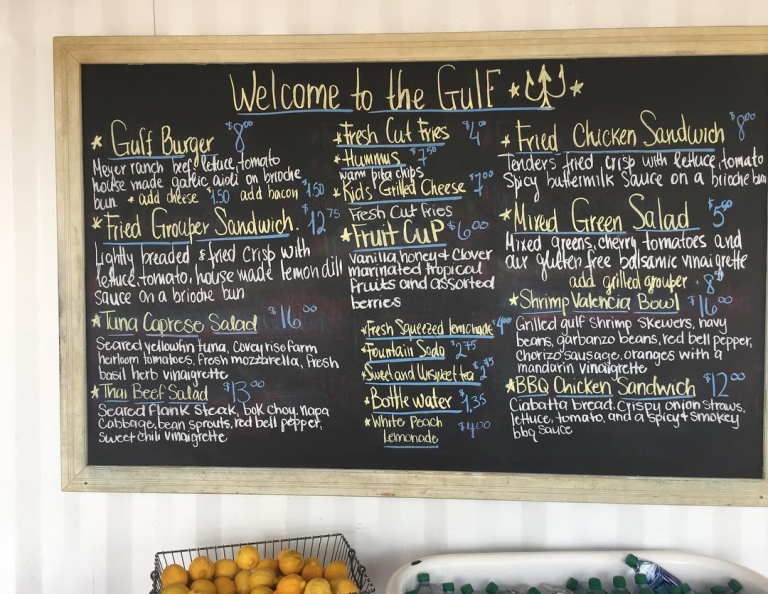 Welcome to the Gulf
Gulf Burger $8⁰⁰
Meyer ranch beef, lettuce, tomato
house made garlic aioli on brioche
bun * add cheese $1.50 add bacon $1.50
Fried Grouper Sandwich. $12⁷⁵
Lightly breaded & fried crisp with
lettuce, tomato, house made lemon dill
sauce on a brioche bun
Tuna Caprese Salad $16⁰⁰
Seared yellowfin tuna, Covey rise farm
heirloom tomatoes, fresh mozzarella, fresh
basil herb vinaigrette
Thai Beef Salad $13⁰⁰
Seared flank steak, bok choy, napa
cabbage, bean sprouts, red bell pepper,
sweet chili vinaigrette
Fresh Cut Fries $4⁰⁰
Hummus $7⁵⁰
warm pita chips
Kid's Grilled Cheese $7⁰⁰
Fresh Cut fries
Fruit Cup $6⁰⁰
vanilla, honey & clover
marinated tropical
fruits and assorted
berries
Fresh Squeezed lemonade $4⁰⁰
Fountain Soda $2⁷⁵
Sweet and Unsweet tea $2⁷⁵
Bottle water $1.35
White Peach
Lemonade $4⁰⁰
Fried Chicken Sandwich $8⁰⁰
Tenders fried crisp with lettuce, tomato
Spicy buttermilk sauce on a brioche bun
Mixed Green Salad $5⁰⁰
Mixed greens, cherry tomatoes and
our gluten free balsamic vinaigrette
add grilled grouper + 8⁰⁰
Shrimp Valencia Bowl $16⁰⁰
Grilled gulf shrimp skewers, navy
beans, garbanzo beans, red bell pepper,
chorizo sausage, oranges with a
mandarin vinaigrette
BBQ Chicken Sandwich $12⁰⁰
Ciabatta bread, crispy onion straws,
lettuce, tomato, and a spicy & smokey
bbq sauce